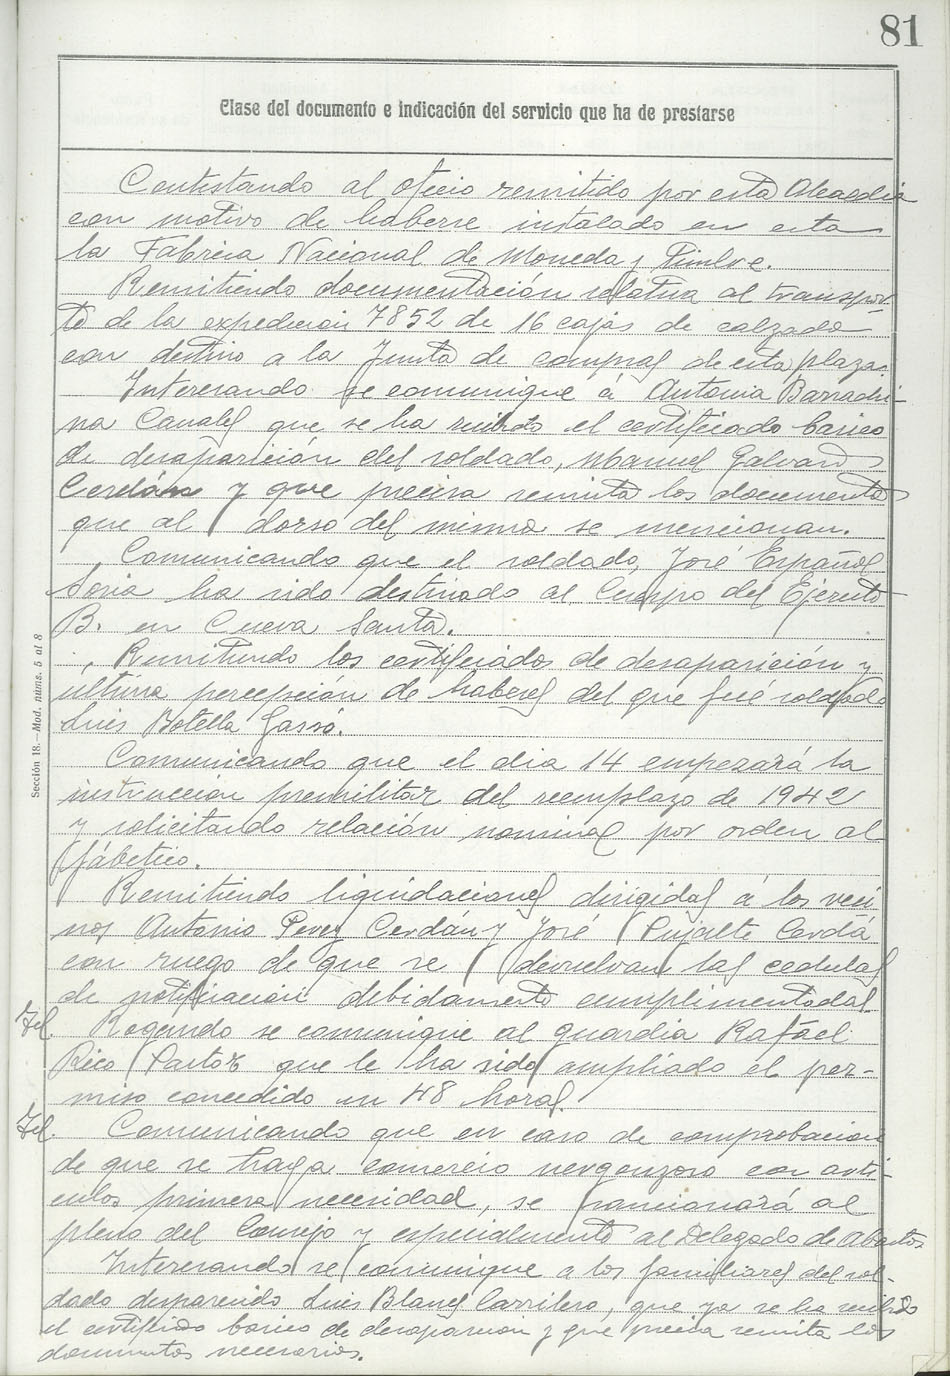 81
Clase del documento e indicación del servicio que ha de prestarse
Contestando al oficio remitido por esta Alcaldia
con motivo de haberse instalado en esta
la Fábrica Nacional de Moneda y Timbre.
Remitiendo documentación relativa al transpor-
te de la expedicion 7852 de 16 cajas de calzado
con destino a la Junta de compras de esta plaza.
Interesando se comunique á Antonia Barrachi-
na Canals que se ha recibido el certificado basico
de desaparición del soldado, Manuel Galvan
Cerdán y que precisa remita los documentos
que al dorso del mismo se mencionan.
Comunicando que el soldado, José Español
Soria ha sido destinado al Cuerpo del Ejército
B. en Cueva Santa.
Remitiendo los certificados de desaparición y
ultima percepción de haberes del que fué soldado
Luis Botella Gassó.
Comunicando que el dia 14 empezará la
instruccion premilitar del reemplazo de 1942
y solicitando relación nominal por orden al
fábetico.
Remitiendo liquidaciones dirigidas á los veci
nos Antonio Perez Cerdán y José Pujalte Cerdá
con ruego de que se devuelvan las cedulas
de notificacion debidamente cumplimentadas.
Tel. Rogando se comunique al guardia Rafael
Rico Pastor que le ha sido ampliado el per-
miso concedido en 48 horas.
Tel. Comunicando que en caso de comprobacion
de que se haga comercio vergonzoso con arti-
culos primera necesidad, se sancionará al
pleno del Consejo y especialmente al Delegado de Abastos
Interesando se comunique a los familiares del sol-
dado desparecido Luis Blanes Carrilero, que ya se ha recibido
el certificado basico de desaparicion y que precisa remita los
documentos necesarios.
Sección 18.—Mod. núms. 5 al 8